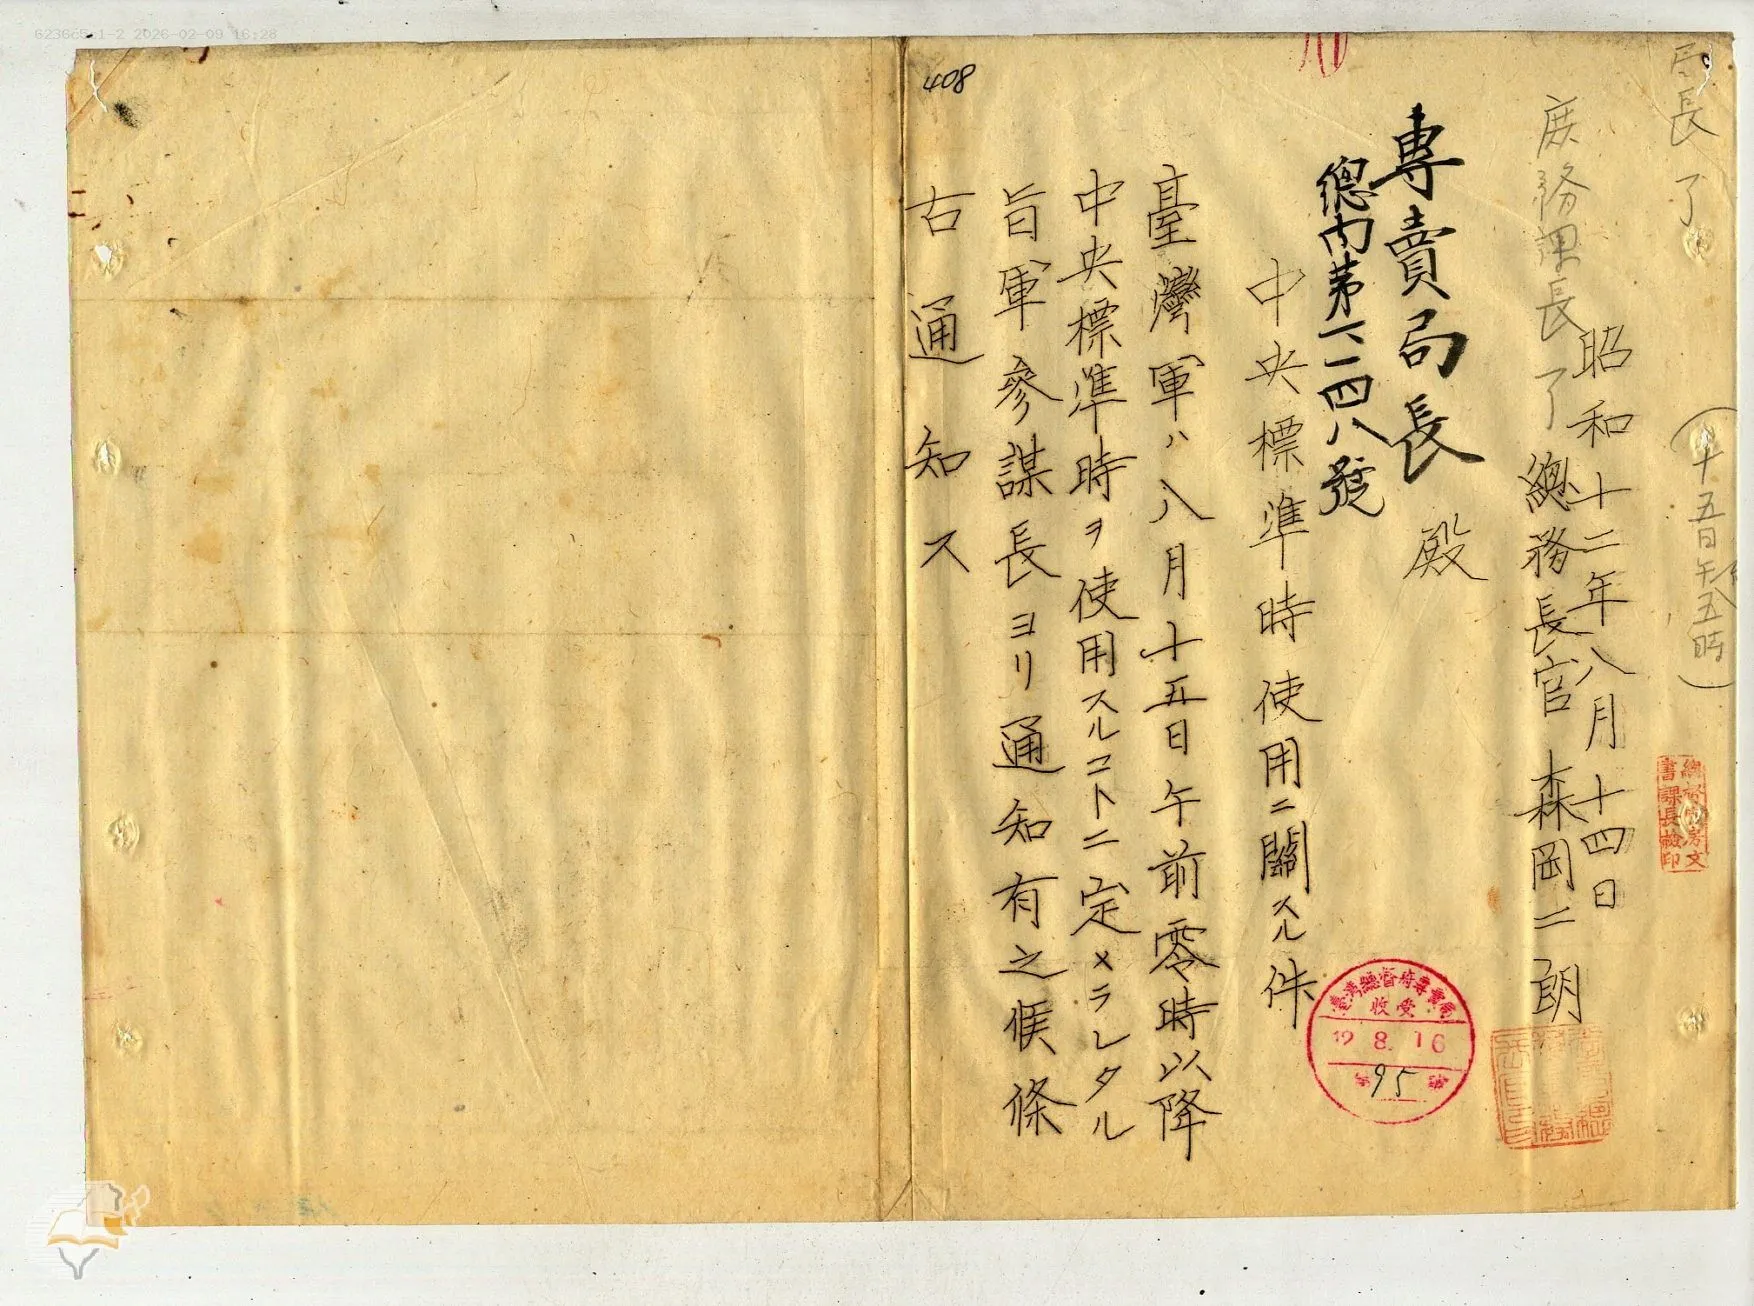 6236c5-1-2 2026-02-09 16:28
408
局長 了
(十五日午后五時)
庶務課長 了
昭和十二年八月十四日
總務長官 森岡二朗
專賣局長 殿
中央標準時使用ニ關スル件
臺灣軍ハ八月十五日午前零時以降
中央標準時ヲ使用スルコトニ定メラレタル
旨軍參謀長ヨリ通知有之候條
右通知ス
總督官房文
書課長檢印
臺灣總督府專賣局
收受
12. 8. 16
第95號